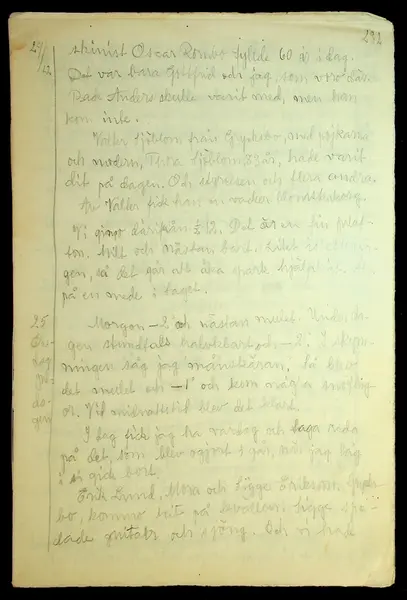 232
24/12
skinist Oscar Rombo fyllde 60 år i dag.
Det var bara Gottfrid och jag, som voro där.
Anders skulle varit med, men han
kom inte.
Valter Sjöblom från Grycksbo, med pojkarna
och modern, Thora Sjöblom 83 år, hade varit
dit på dagen. Och styrelsen och flera andra.
Av Valter fick han en vacker blomsterkorg.
Vi gingo därifrån 1/2 12. Det är en fin
Milt och nästan bart.
gen, så det går att åka spark hjälpligt
på en mede i taget.
25
dag
Morgon -2° och nästan mulet. Under da-
gen stundtals halvklart och -2°. I skym-
ningen såg jag månskäran. Så blev
det mulet och -1° och kom några snöfling-
or. Vid midnattstid blev det klart.
I dag fick jag ha vardag och laga reda
på det, som blev ogjort i går, när jag
gick bort.
Erik Lund, Mora och Sigge Eriksson, Grycks-
bo, kommo hit på kvällen. Sigge spe-
lade guitarr och sjöng. Och vi hade